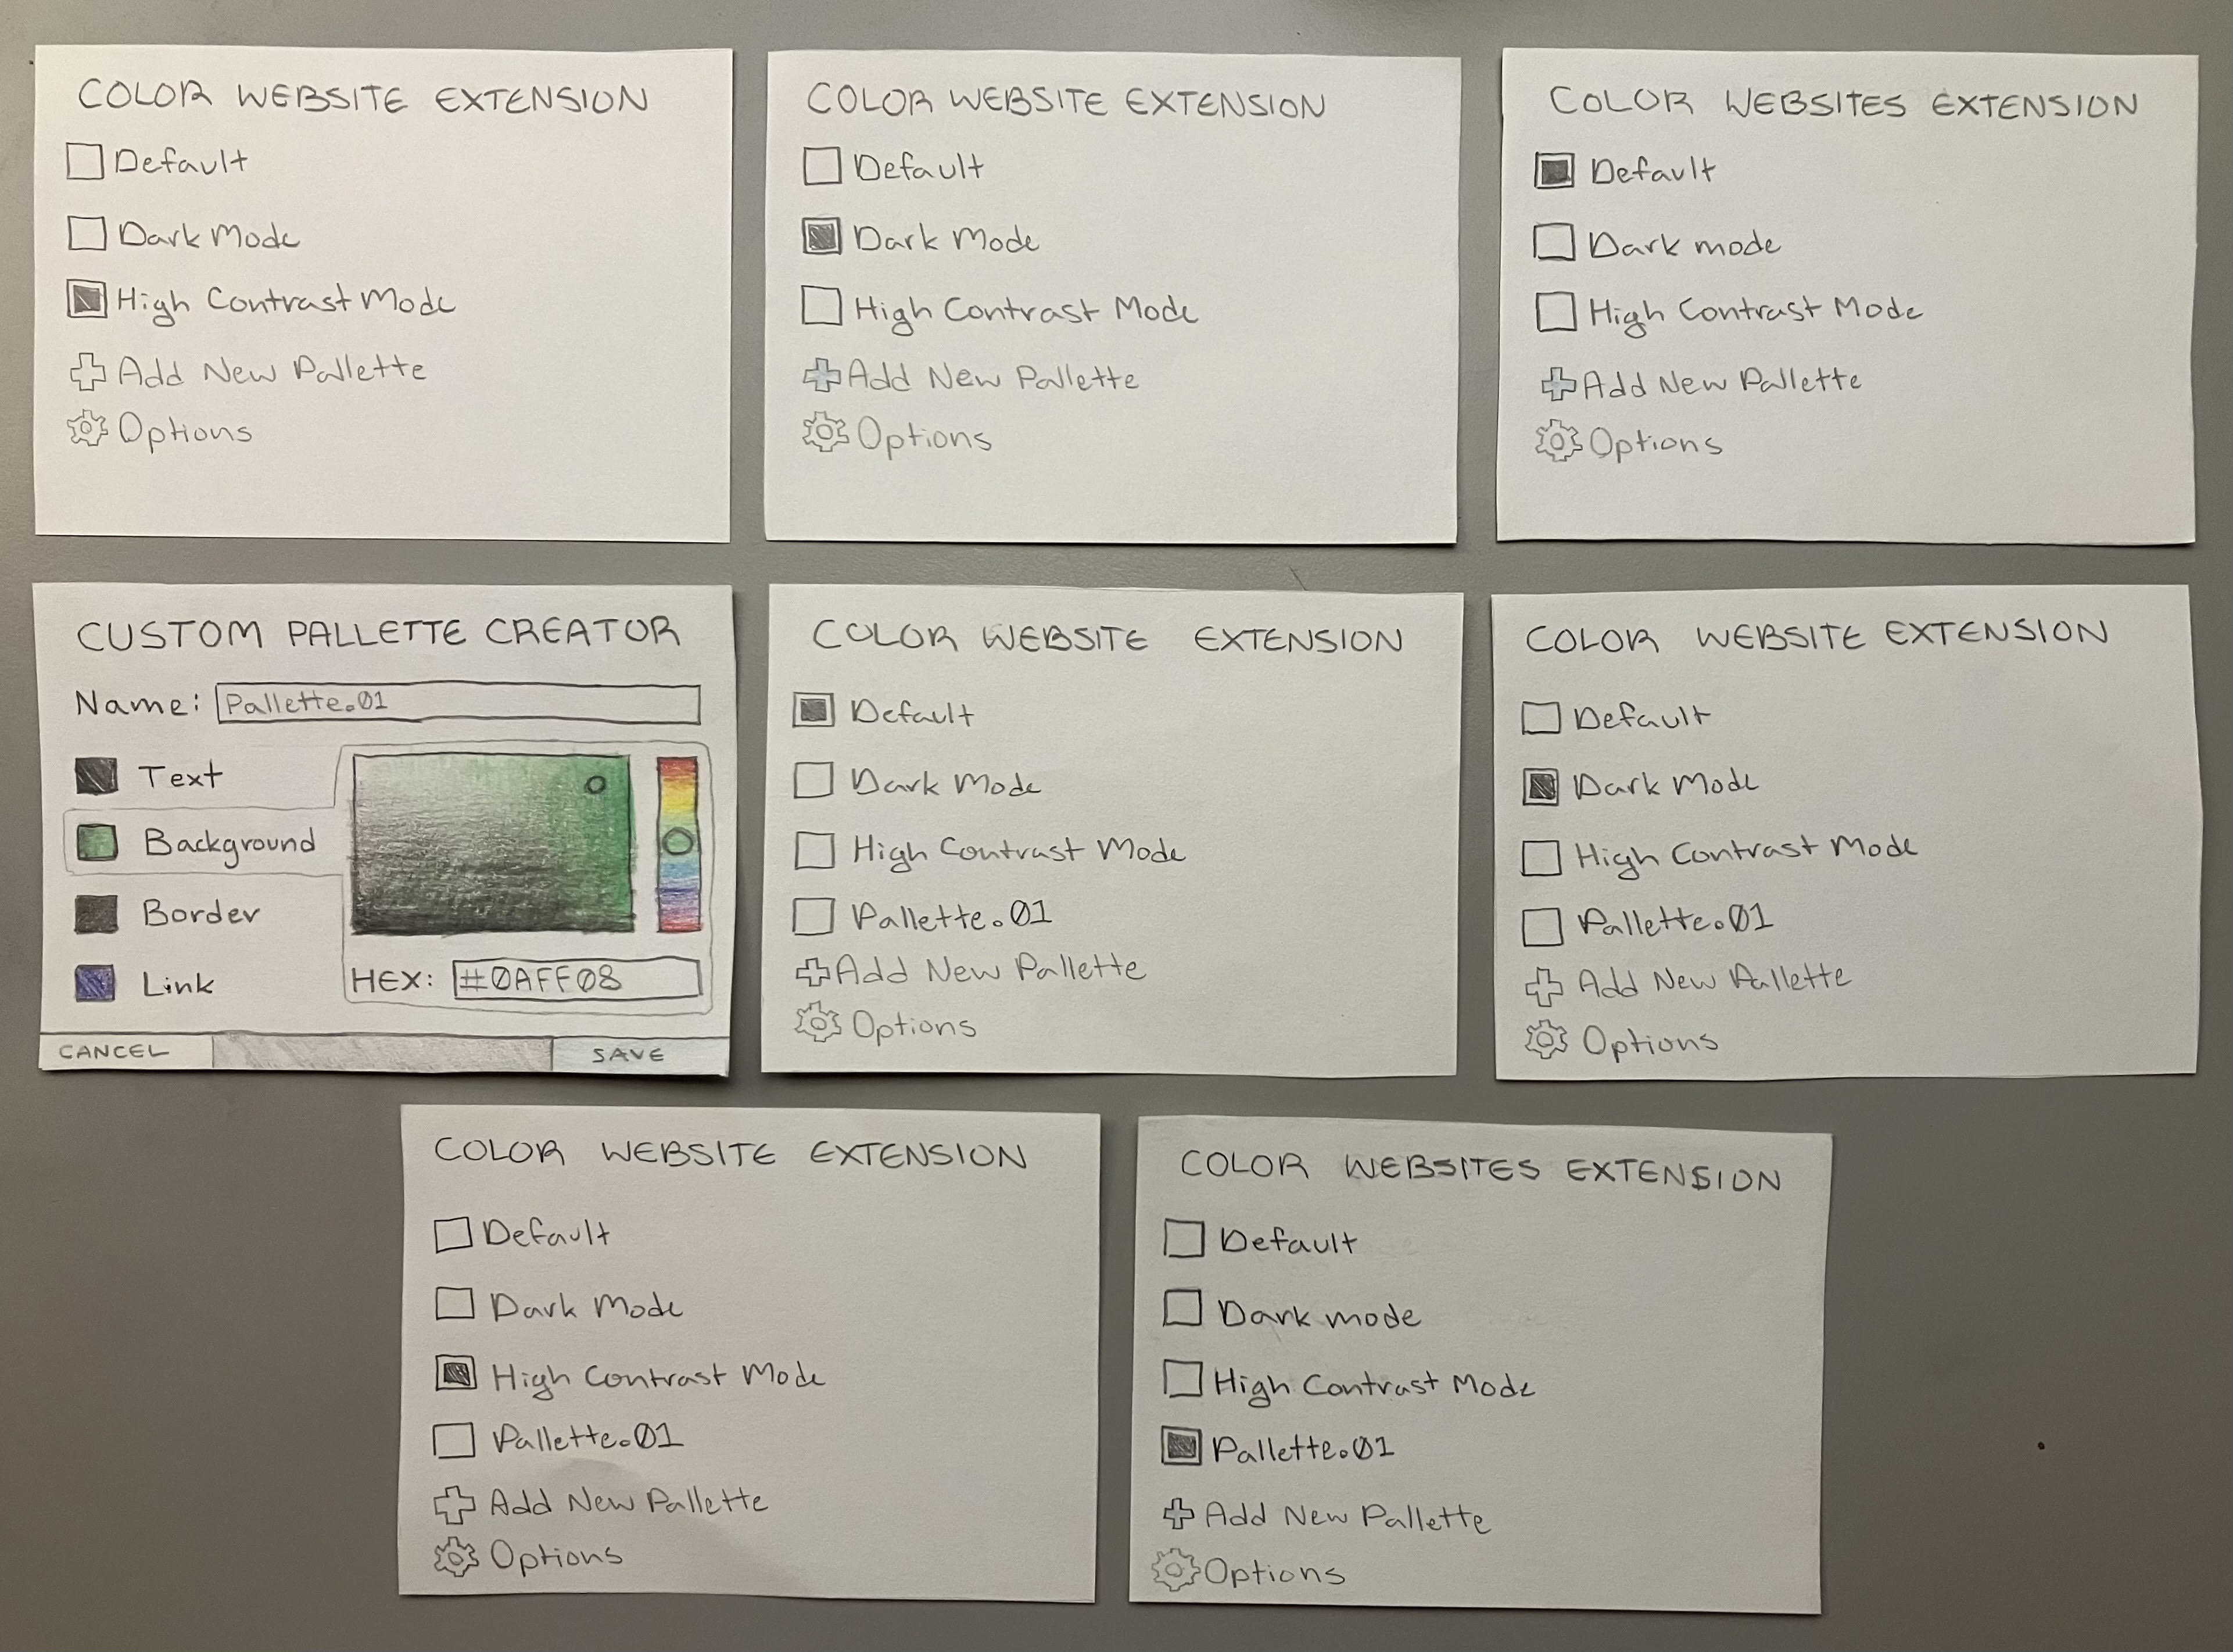 COLOR WEBSITE EXTENSION
Default
Dark Mode
High Contrast Mode
Add New Pallette
Options
COLOR WEBSITE EXTENSION
Default
Dark Mode
High Contrast Mode
Add New Pallette
Options
COLOR WEBSITES EXTENSION
Default
Dark mode
High Contrast Mode
Add New Pallette
Options
CUSTOM PALLETTE CREATOR
Name: Pallette.01
Text
Background
Border
Link
HEX: #0AFF08
CANCEL
SAVE
COLOR WEBSITE EXTENSION
Default
Dark Mode
High Contrast Mode
Pallette.01
Add New Pallette
Options
COLOR WEBSITE EXTENSION
Default
Dark Mode
High Contrast Mode
Pallette.01
Add New Pallette
Options
COLOR WEBSITE EXTENSION
Default
Dark Mode
High Contrast Mode
Pallette.01
Add New Pallette
Options
COLOR WEBSITES EXTENSION
Default
Dark mode
High Contrast Mode
Pallette.01
Add New Pallette
Options